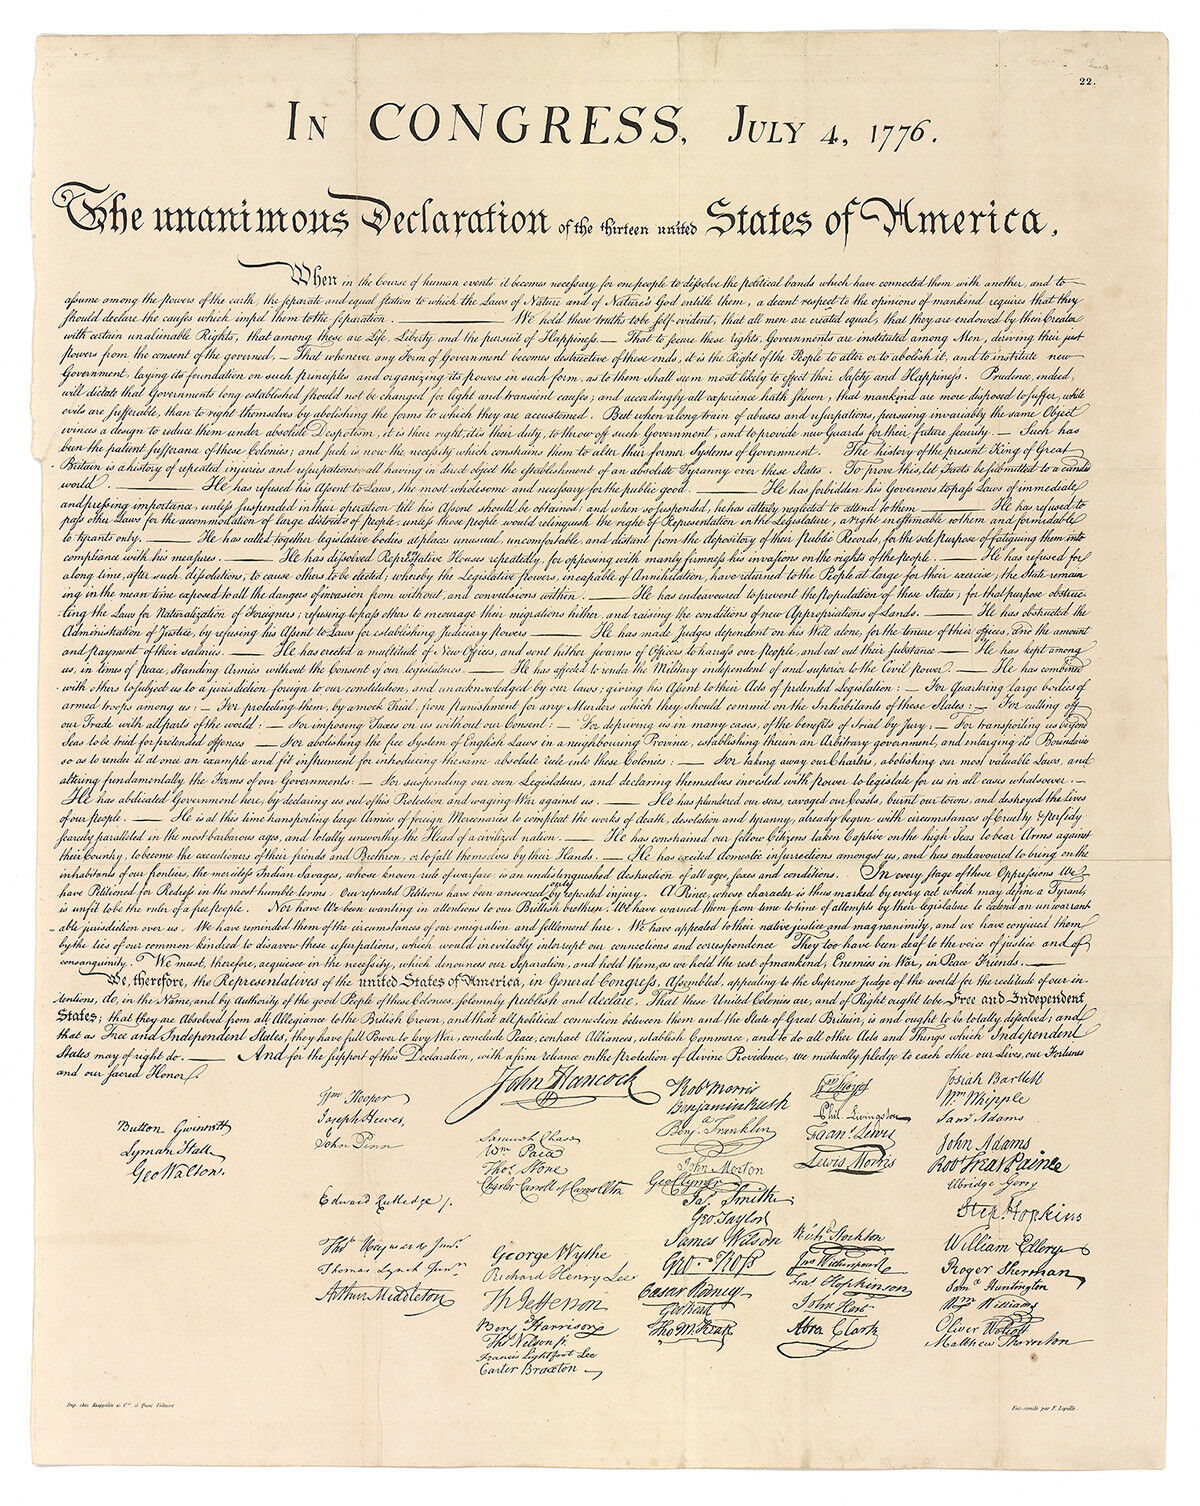 22.
In CONGRESS, July 4, 1776.
The unanimous Declaration of the thirteen united States of America,
When in the Course of human events it becomes necessary for one people to dissolve the political bands which have connected them with another, and to
assume among the powers of the earth, the separate and equal station to which the Laws of Nature and of Nature's God entitle them, a decent respect to the opinions of mankind requires that they
should declare the causes which impel them to the separation. — We hold these truths to be self-evident, that all men are created equal, that they are endowed by their Creator
with certain unalienable Rights, that among these are Life, Liberty and the pursuit of Happiness. — That to secure these rights, Governments are instituted among Men, deriving their just
powers from the consent of the governed, — That whenever any Form of Government becomes destructive of these ends, it is the Right of the People to alter or to abolish it, and to institute new
Government, laying its foundation on such principles and organizing its powers in such form, as to them shall seem most likely to effect their Safety and Happiness. Prudence, indeed,
will dictate that Governments long established should not be changed for light and transient causes; and accordingly all experience hath shewn, that mankind are more disposed to suffer, while
evils are sufferable, than to right themselves by abolishing the forms to which they are accustomed. But when a long train of abuses and usurpations, pursuing invariably the same Object
evinces a design to reduce them under absolute Despotism, it is their right, it is their duty, to throw off such Government, and to provide new Guards for their future security. — Such has
been the patient sufferance of these Colonies; and such is now the necessity which constrains them to alter their former Systems of Government. The history of the present King of Great
Britain is a history of repeated injuries and usurpations, all having in direct object the establishment of an absolute Tyranny over these States. To prove this, let Facts be submitted to a candid
world. — He has refused his Assent to Laws, the most wholesome and necessary for the public good. — He has forbidden his Governors to pass Laws of immediate
and pressing importance, unless suspended in their operation till his Assent should be obtained; and when so suspended, he has utterly neglected to attend to them — He has refused to
pass other Laws for the accommodation of large districts of people, unless those people would relinquish the right of Representation in the Legislature, a right inestimable to them and formidable
to tyrants only. — He has called together legislative bodies at places unusual, uncomfortable, and distant from the depository of their Public Records, for the sole purpose of fatiguing them into
compliance with his measures. — He has dissolved Representative Houses repeatedly, for opposing with manly firmness his invasions on the rights of the people. — He has refused for
a long time, after such dissolutions, to cause others to be elected; whereby the Legislative powers, incapable of Annihilation, have returned to the People at large for their exercise; the State remain
ing in the mean time exposed to all the dangers of invasion from without, and convulsions within. — He has endeavoured to prevent the population of these States; for that purpose obstruc-
ting the Laws for Naturalization of Foreigners; refusing to pass others to encourage their migrations hither, and raising the conditions of new Appropriations of Lands. — He has obstructed the
Administration of Justice, by refusing his Assent to Laws for establishing Judiciary powers — He has made Judges dependent on his Will alone, for the tenure of their offices, and the amount
and payment of their salaries. — He has erected a multitude of New Offices, and sent hither swarms of Officers to harass our people, and eat out their substance — He has kept among
us, in times of peace, Standing Armies without the Consent of our legislatures. — He has affected to render the Military independent of and superior to the Civil power — He has combined
with others to subject us to a jurisdiction foreign to our constitution, and unacknowledged by our laws; giving his Assent to their Acts of pretended Legislation: — For Quartering large bodies of
armed troops among us: — For protecting them, by a mock Trial, from punishment for any Murders which they should commit on the Inhabitants of these States: — For cutting off
our Trade with all parts of the world: — For imposing Taxes on us without our Consent: — For depriving us in many cases, of the benefits of Trial by Jury; — For transporting us beyond
Seas to be tried for pretended offences — For abolishing the free System of English Laws in a neighbouring Province, establishing therein an Arbitrary government, and enlarging its Boundaries
so as to render it at once an example and fit instrument for introducing the same absolute rule into these Colonies: — For taking away our Charters, abolishing our most valuable Laws, and
altering fundamentally the Forms of our Governments: — For suspending our own Legislatures, and declaring themselves invested with power to legislate for us in all cases whatsoever. —
He has abdicated Government here, by declaring us out of his Protection and waging War against us. — He has plundered our seas, ravaged our Coasts, burnt our towns, and destroyed the Lives
of our people. — He is at this time transporting large Armies of foreign Mercenaries to compleat the works of death, desolation and tyranny, already begun with circumstances of Cruelty & perfidy
scarcely paralleled in the most barbarous ages, and totally unworthy the Head of a civilized nation. — He has constrained our fellow Citizens taken Captive on the high Seas to bear Arms against
their Country, to become the executioners of their friends and Brethren, or to fall themselves by their Hands. — He has excited domestic insurrections amongst us, and has endeavoured to bring on the
inhabitants of our frontiers, the merciless Indian Savages, whose known rule of warfare, is an undistinguished destruction of all ages, sexes and conditions. In every stage of these Oppressions We
have Petitioned for Redress in the most humble terms: Our repeated Petitions have been answered only by repeated injury. A Prince, whose character is thus marked by every act which may define a Tyrant,
is unfit to be the ruler of a free people. Nor have We been wanting in attentions to our British brethren. We have warned them from time to time of attempts by their legislature to extend an unwarrant
able jurisdiction over us. We have reminded them of the circumstances of our emigration and settlement here. We have appealed to their native justice and magnanimity, and we have conjured them
by the ties of our common kindred to disavow these usurpations, which would inevitably interrupt our connections and correspondence They too have been deaf to the voice of justice and of
consanguinity. We must, therefore, acquiesce in the necessity, which denounces our Separation, and hold them, as we hold the rest of mankind, Enemies in War, in Peace Friends. —
We, therefore, the Representatives of the united States of America, in General Congress, Assembled, appealing to the Supreme Judge of the world for the rectitude of our in-
tentions, do, in the Name, and by Authority of the good People of these Colonies, solemnly publish and declare, That these United Colonies are, and of Right ought to be Free and Independent
States; that they are Absolved from all Allegiance to the British Crown, and that all political connection between them and the State of Great Britain, is and ought to be totally dissolved; and
that as Free and Independent States, they have full Power to levy War, conclude Peace, contract Alliances, establish Commerce, and to do all other Acts and Things which Independent
States may of right do. — And for the support of this Declaration, with a firm reliance on the protection of divine Providence, we mutually pledge to each other our Lives, our Fortunes
and our sacred Honor.
Button Gwinnett
Lyman Hall
Geo Walton.
Wm Hooper
Joseph Hewes,
John Penn
Edward Rutledge /.
Thos Heyward Junr.
Thomas Lynch Junr.
Arthur Middleton
John Hancock
Samuel Chase
Wm Paca
Thos Stone
Charles Carroll of Carrollton
George Wythe
Richard Henry Lee
Th Jefferson
Benj Harrison
Thos Nelson jr.
Francis Lightfoot Lee
Carter Braxton
Robt Morris
Benjamin Rush
Benja Franklin
John Morton
Geo Clymer
Jas. Smith
Geo. Taylor
James Wilson
Geo. Ross
Caesar Rodney
Geo Read
Tho M:Kean
Wm Floyd
Phil. Livingston
Frans. Lewis
Lewis Morris
Richd Stockton
Jno Witherspoon
Fras. Hopkinson
John Hart
Abra Clark
Josiah Bartlett
Wm Whipple
Saml Adams
John Adams
Robt Treat Paine
Elbridge Gerry
Step. Hopkins
William Ellery
Roger Sherman
Saml Huntington
Wm Williams
Oliver Wolcott
Matthew Thornton
Imp. chez Kaeppelin & Cie Quai Voltaire
Fac-simile par F. Lepelle